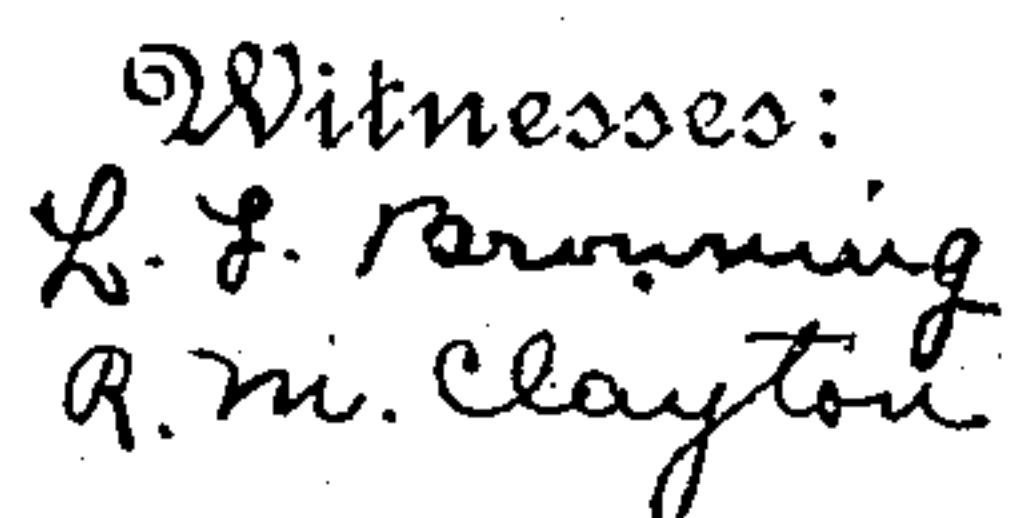 Witnesses:
L. L. Browning
R. M. Clayton